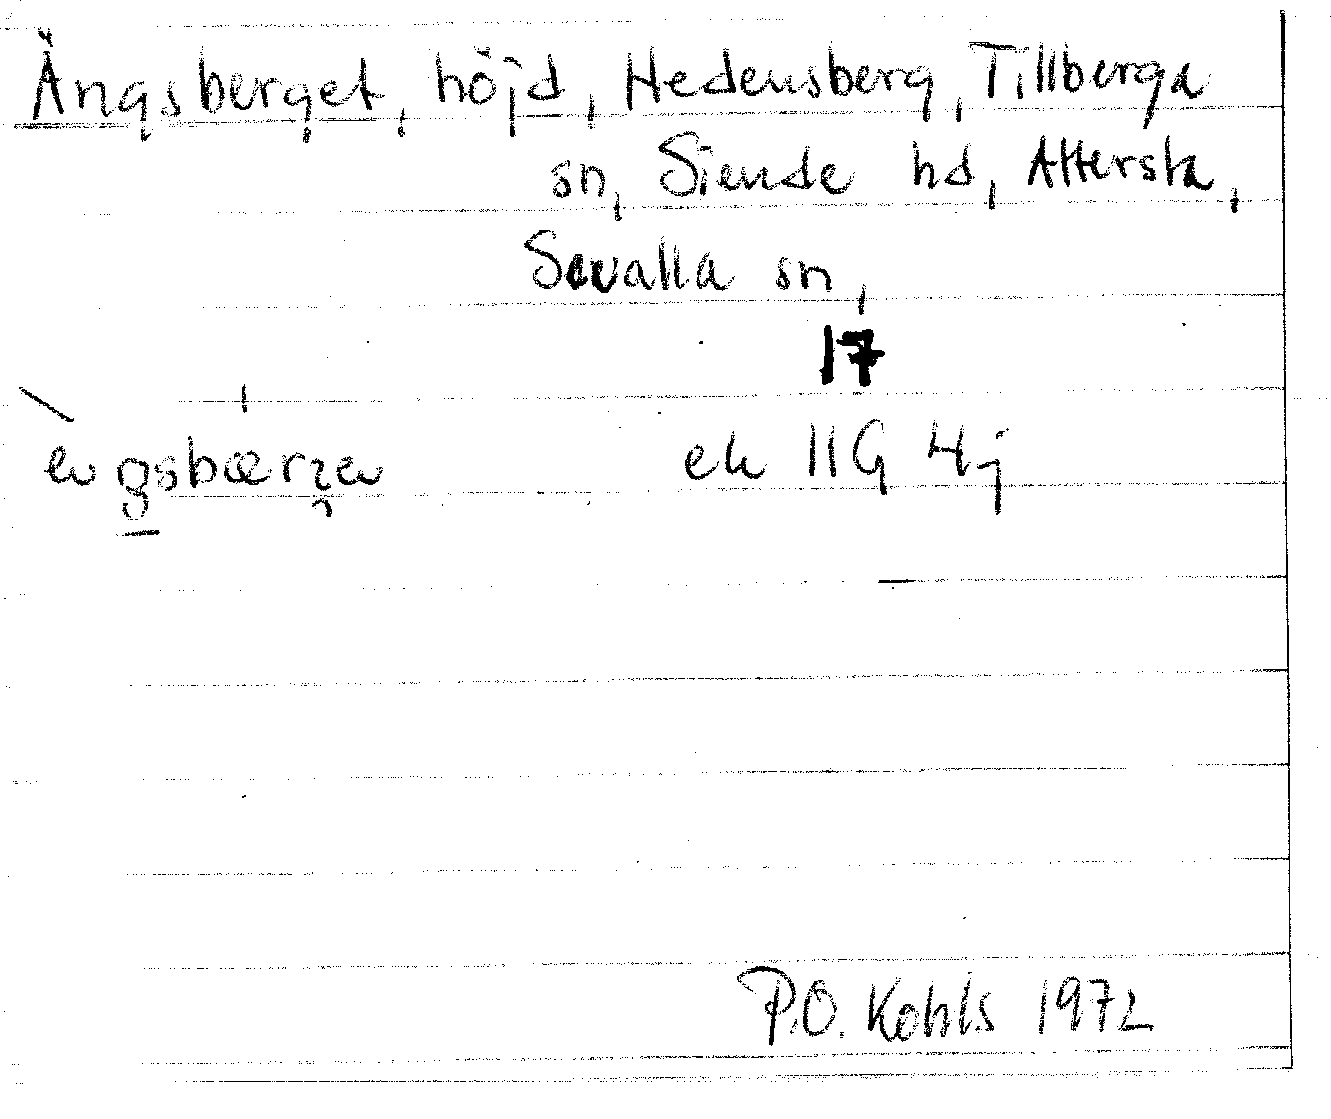 Ängsberget, höjd, Hedensberg, Tillberga
sn, Siende hd, Attersta,
Sevalla sn,
17
ek 11G 4j
P.O. Kohls 1972